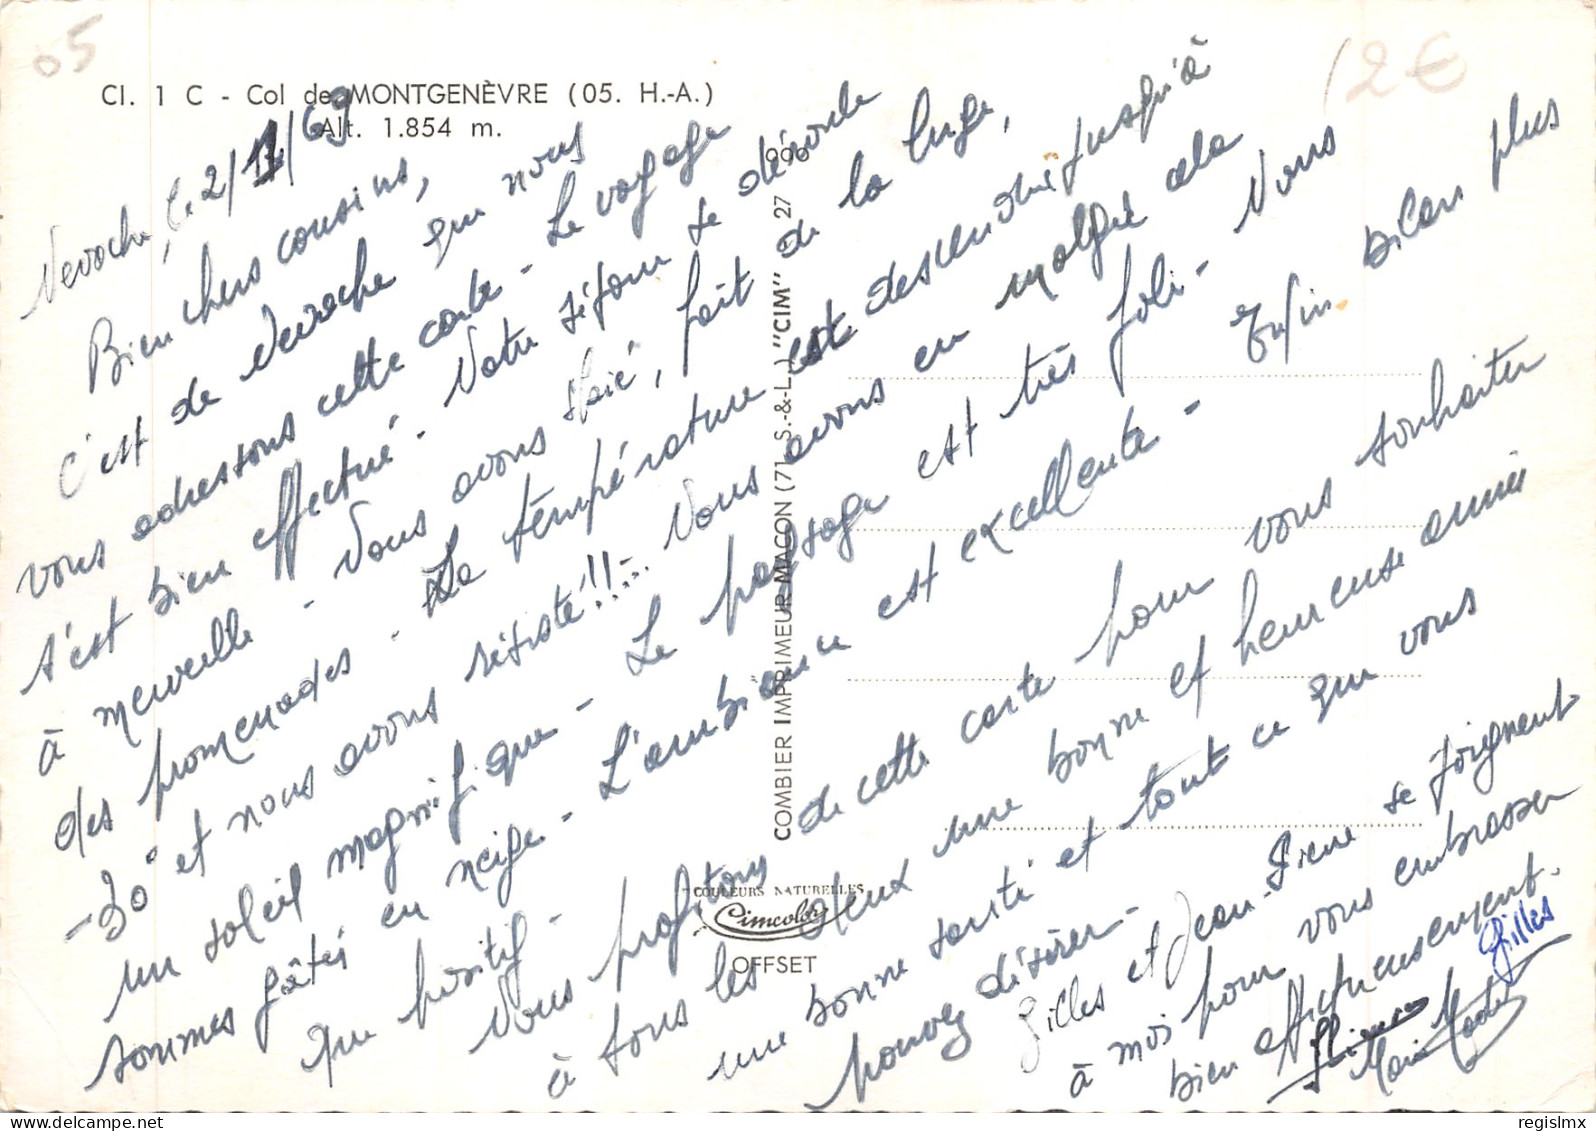 05
12€
Cl. 1 C - Col de MONTGENÈVRE (05. H.-A.)
Alt. 1.854 m.
Nevache, le 2/1/69
Bien chers cousins,
C'est de Nevache que nous
vous adressons cette carte - Le voyage
s'est bien effectué - Notre séjour se déroule
à merveille - Nous avons skié, fait de la luge,
des promenades - La température est descendue jusqu'à
-30° et nous avons résisté!!... Nous avons eu malgré cela
un soleil magnifique - Le paysage est très joli - Nous
sommes gâtés en neige - L'ambiance est excellente - Enfin bilan plus
que positif -
Nous profitons de cette carte pour vous souhaiter
à tous les deux une bonne et heureuse année
une bonne santé et tout ce que vous
pouvez désirer -
Gilles et Jean-Pierre se joignent
à moi pour vous embrasser
bien affectueusement.
Gilles
JPierre
Marie
990
COMBIER IMPRIMEUR MACON (71. S.-&-L.) "CIM" 27
COULEURS NATURELLES
Cimcolor
OFFSET
delcampe.net
regislmx